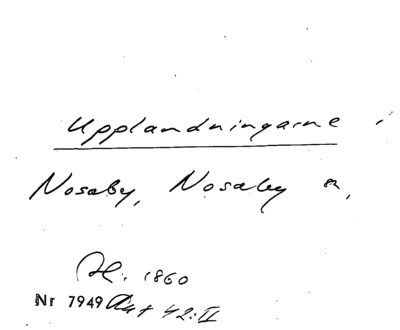 Upplandningarne i
Nosaby, Nosaby sn,
Af. 1860
Nr 7949 Akt 42:II